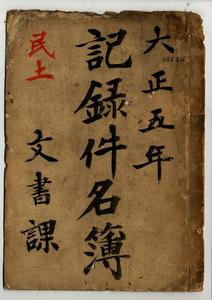 大正五年
記録件名簿
民土
文書課